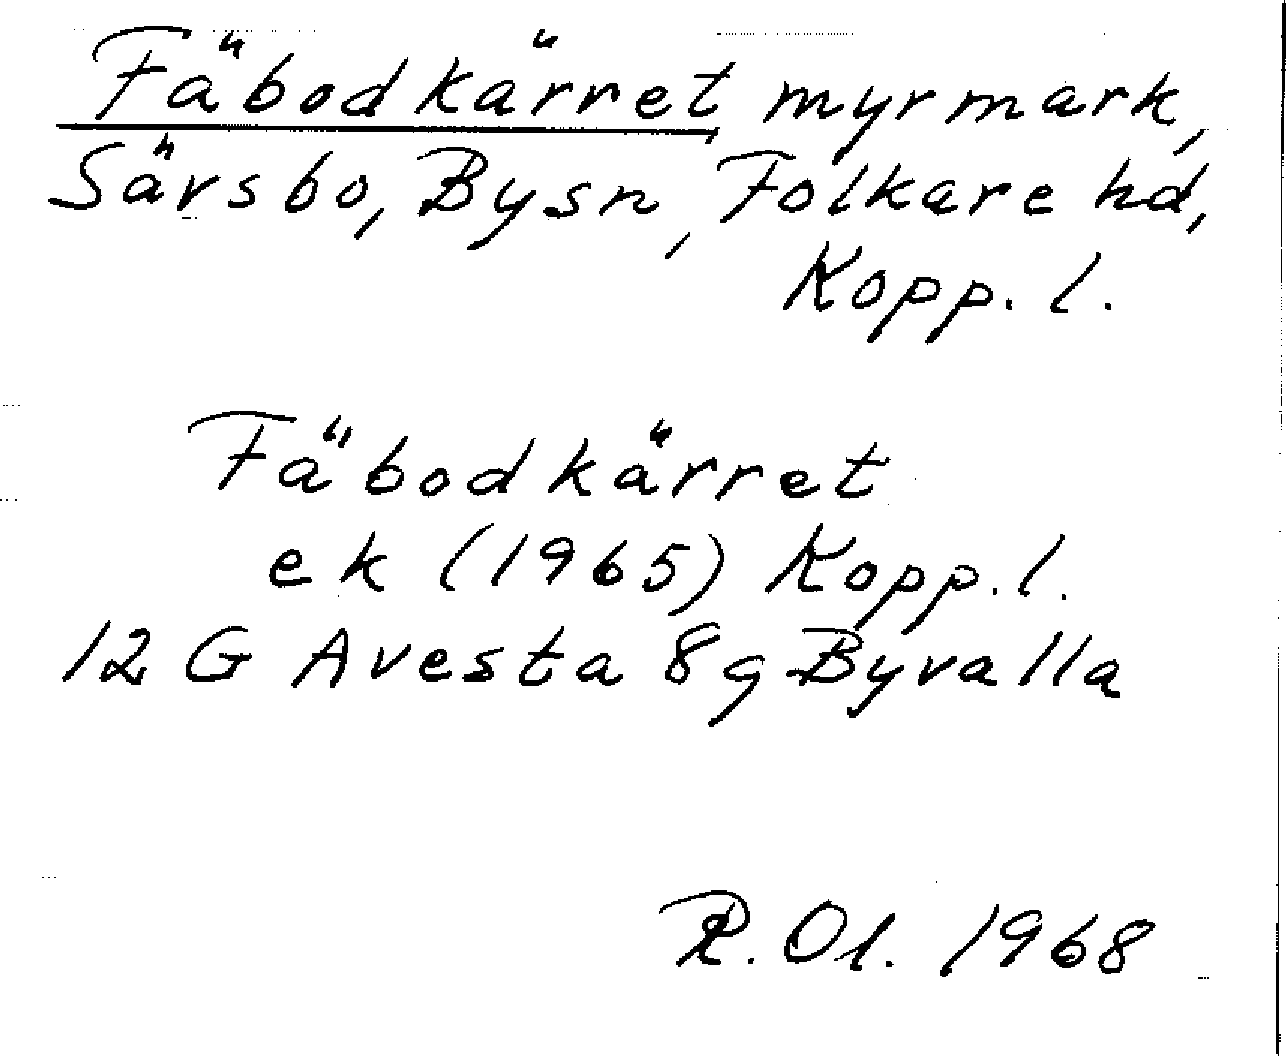 Fäbodkärret myrmark,
Särsbo, Bysn, Folkare hd,
Kopp. l.
Fäbodkärret
ek (1965) Kopp. l.
12 G Avesta 8g Byvalla
R. Ol. 1968